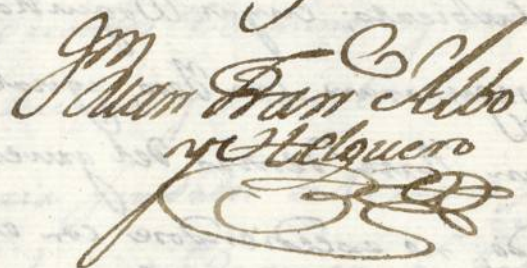 Juan Fran Albo
y Helguero